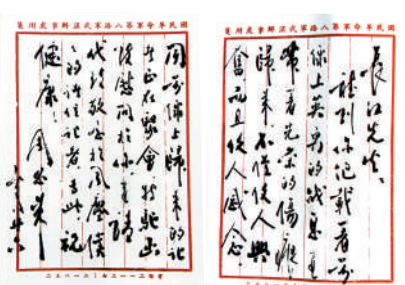 國民革命軍第八路軍武漢辦事處用箋
長江先生：
聽到你飽載着前
線上英勇的战息，並
帶着光荣的傷痕
歸来，不僅使人興
奮，而且使人感念。
國民革命軍第八路軍武漢辦事處用箋
闻前線上歸来的記
者正在聚會，特驰函
致慰問於你，並請
代致敬意於風塵僕
僕的諸位記者。專此，祝
健康！ 周恩来